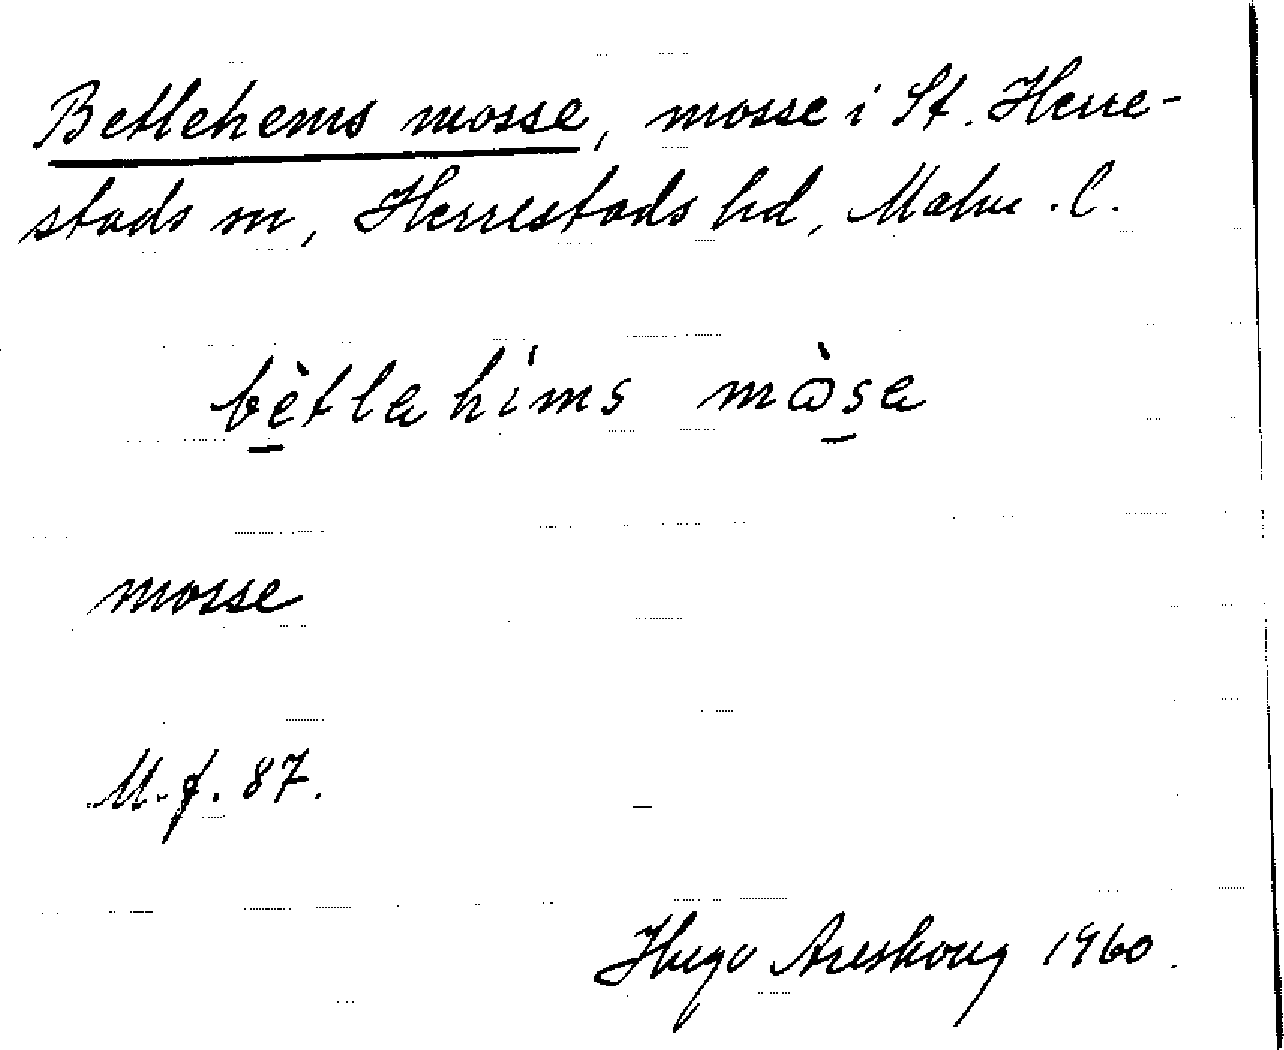 Betlehems mosse, mosse i St. Herre-
stads sn, Herrestads hd, Malm. l.
bètlahims mòsa
mosse
M.f. 87.
Hugo Areskoug 1960.